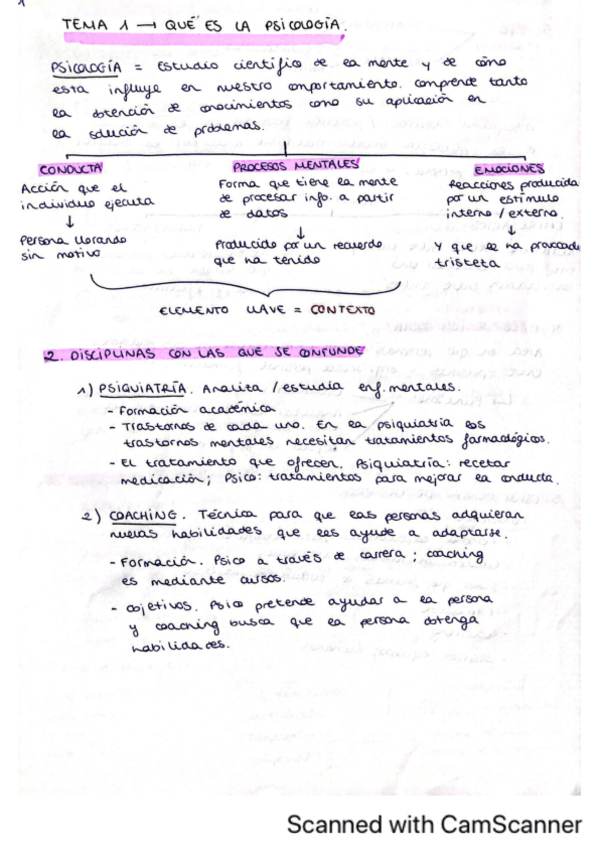 1
TEMA 1 → QUÉ ES LA PSICOLOGÍA.
PSICOLOGÍA = Estudio científico de la mente y de cómo
esta influye en nuestro comportamiento. Comprende tanto
la obtención de conocimientos como su aplicación en
la solución de problemas.
CONDUCTA
Acción que el
individuo ejecuta
↓
Persona llorando
sin motivo
PROCESOS MENTALES
Forma que tiene la mente
de procesar info. a partir
de datos
↓
Producido por un recuerdo
que ha tenido
EMOCIONES
Reacciones producida
por un estímulo
interno / externo.
↓
Y que le ha provocado
tristeza
ELEMENTO LLAVE = CONTEXTO
2. DISCIPLINAS CON LAS QUE SE CONFUNDE
1) PSIQUIATRÍA. Analiza / estudia enf. mentales.
- Formación académica
- Trastornos de cada uno. En la psiquiatría los
trastornos mentales necesitan tratamientos farmacológicos.
- El tratamiento que ofrecen. Psiquiatría: recetar
medicación; Psico: tratamientos para mejorar la conducta.
2) COACHING. Técnica para que las personas adquieran
nuevas habilidades que les ayude a adaptarse.
- Formación. Psico a través de carrera; coaching
es mediante cursos.
- Objetivos. Psico pretende ayudar a la persona
y coaching busca que la persona obtenga
habilidades.
Scanned with CamScanner